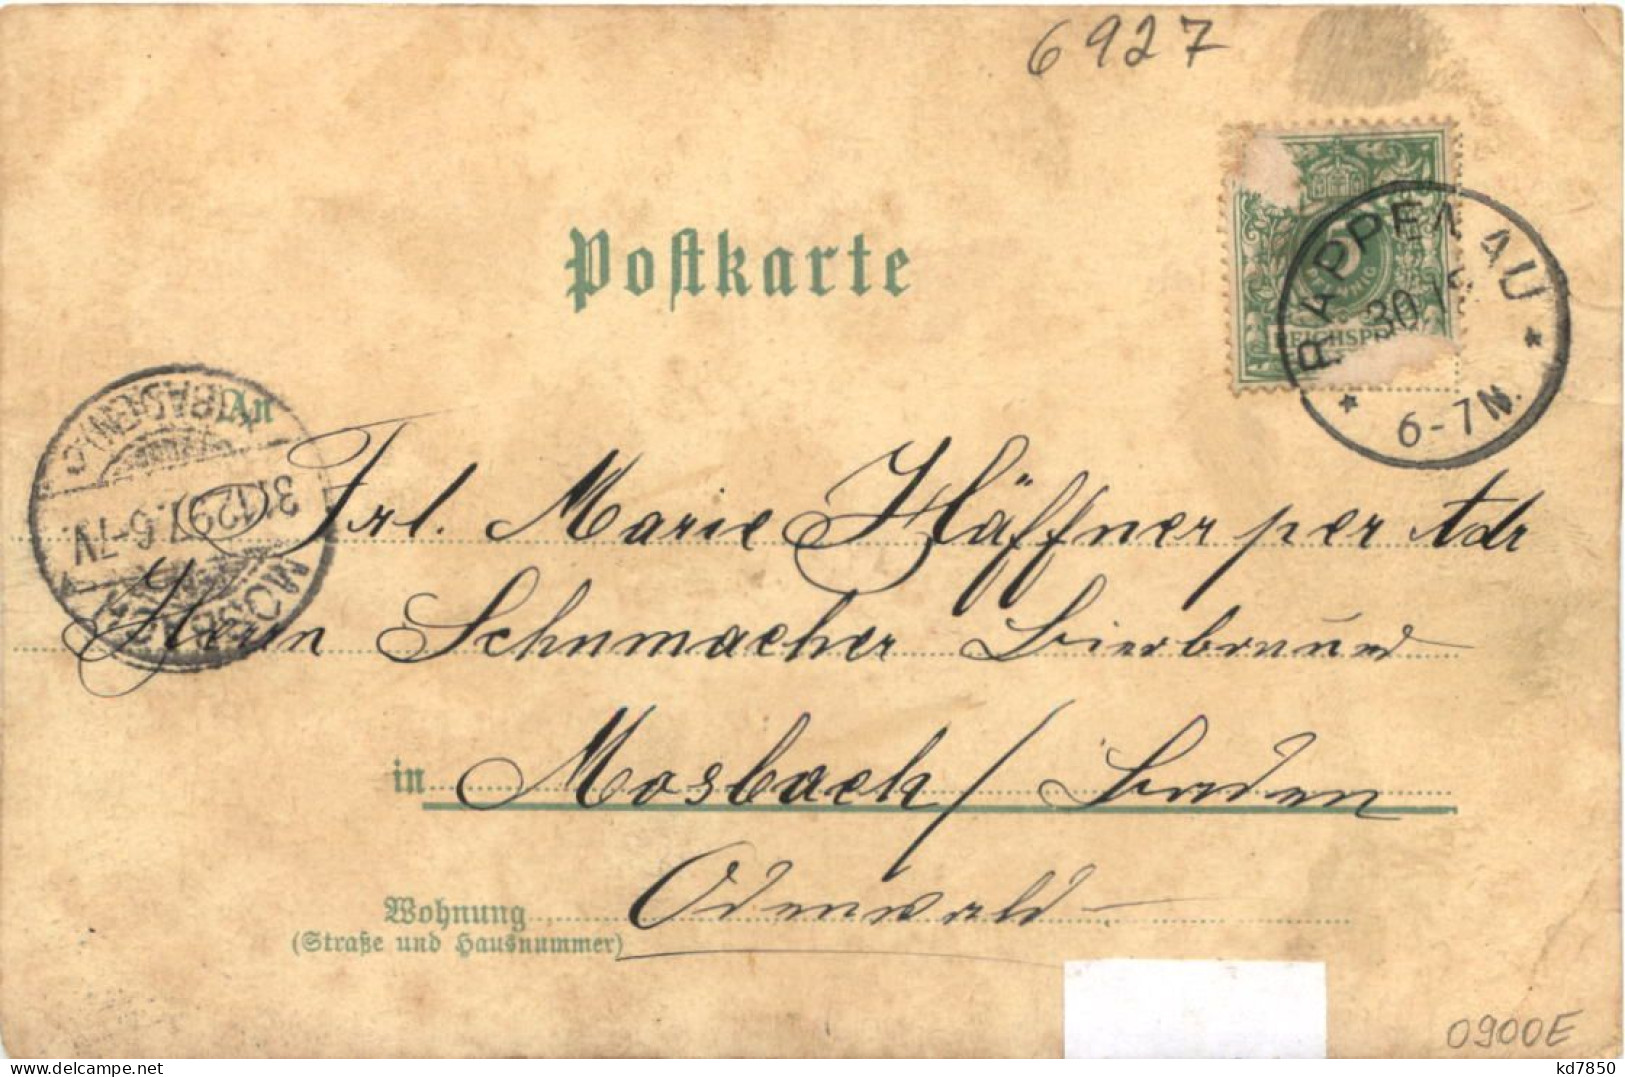 6927
Postkarte
5
REICHSPOST
RAPPENAU
30 12
6-7 N.
An
(BADEN)
31.12.97. 6-7V.
MOSBACH
Frl. Marie Häffner per Adr
Herrn Schumacher Bierbrauer
in Mosbach / Baden
Wohnung Odenwald
(Straße und Hausnummer)
0900E
kd7850